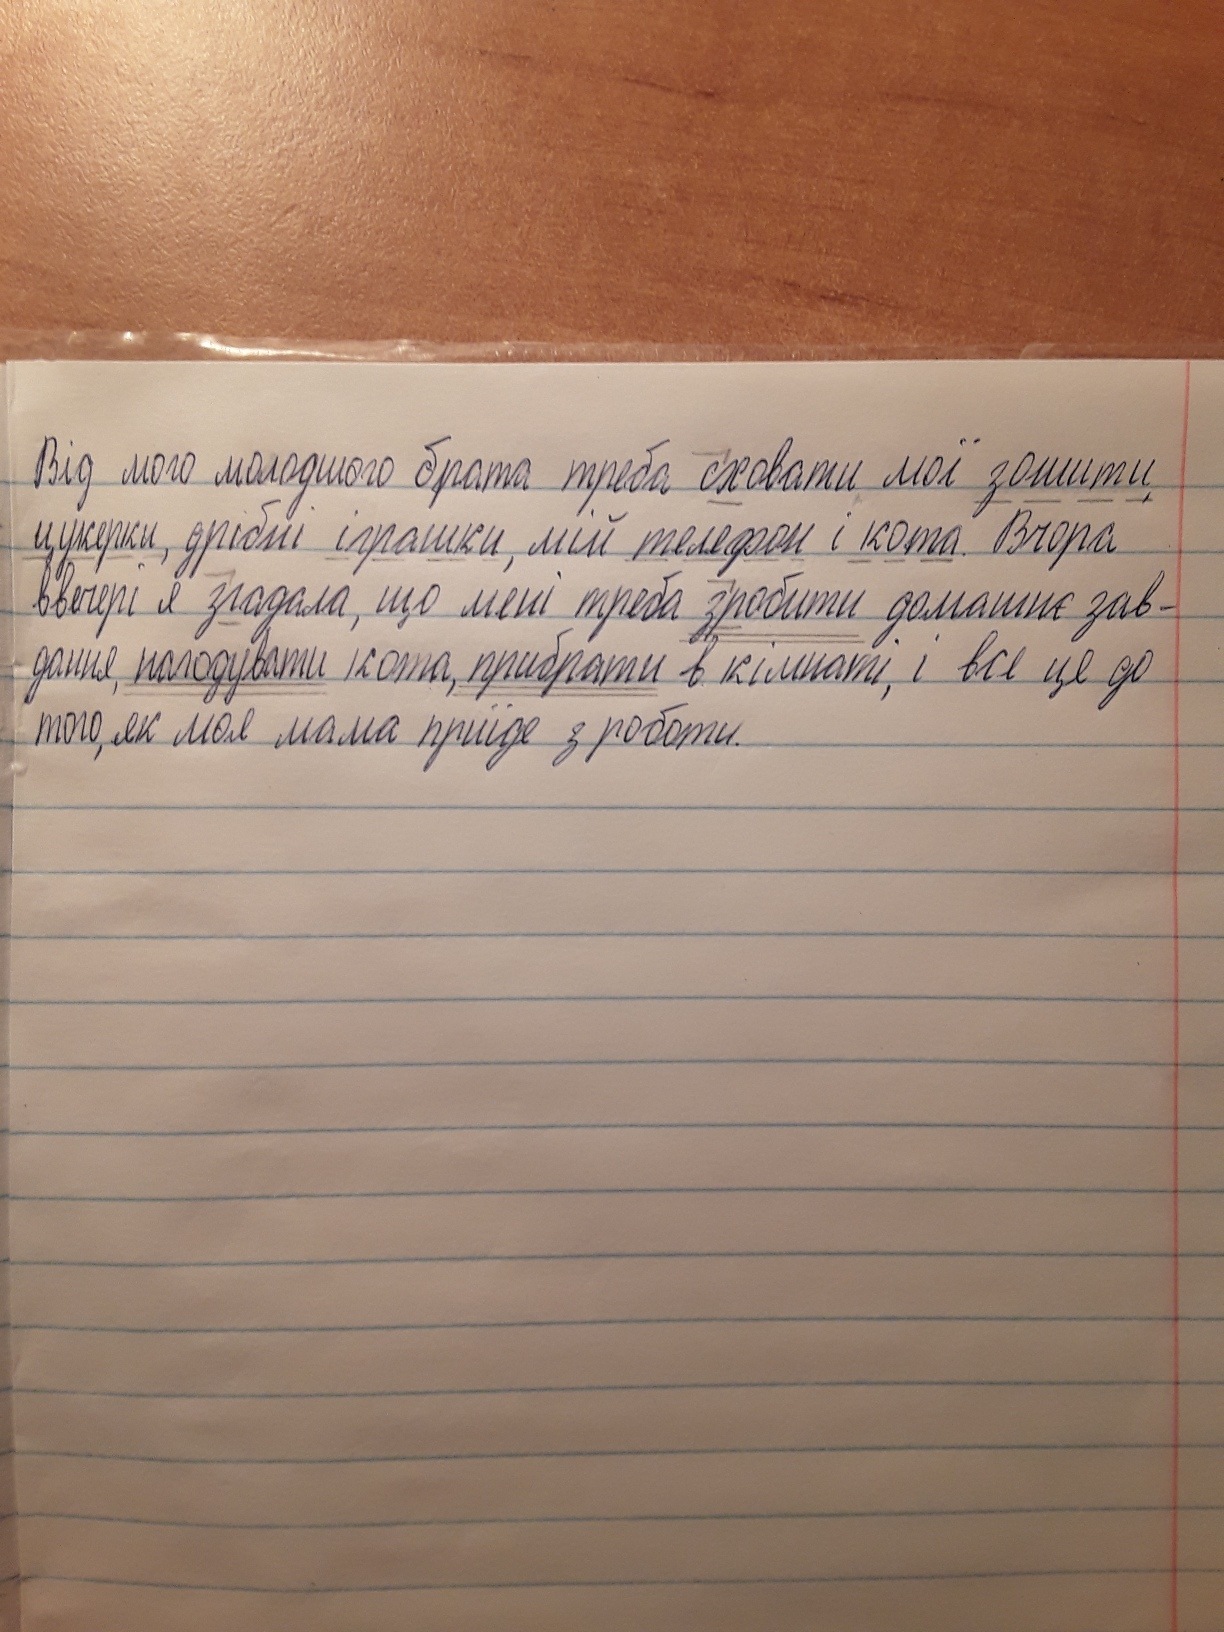 Від мого молодшого брата треба сховати мої зошити,
цукерки, дрібні іграшки, мій телефон і кота. Вчора
ввечері я згадала, що мені треба зробити домашнє зав-
дання, нагодувати кота, прибрати в кімнаті, і все це до
того, як моя мама приїде з роботи.